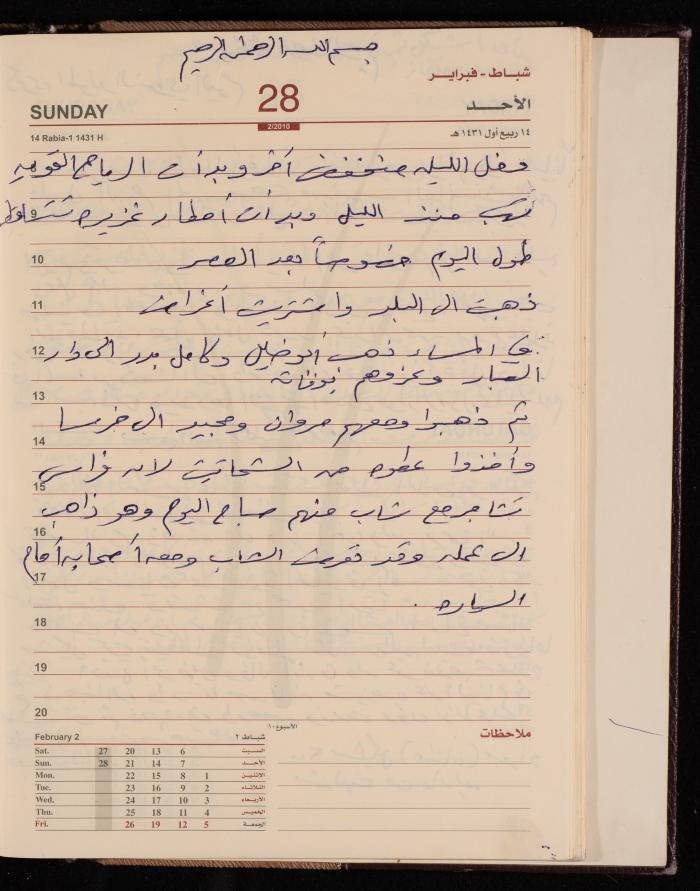 بسم الله الرحمن الرحيم
شباط - فبراير
SUNDAY 28 الأحد
2/2010
14 Rabia-1 1431 H ١٤ ربيع أول ١٤٣١ هـ
دخل الليله منخفض آخر وبدأت الرياح القويه
9 تهب منذ الليل وبدأت أمطار غزيره تتساقط
10 طول اليوم خصوصاً بعد العصر
11 ذهبت الى البلد واشتريت أغراض
12 في المساء ذهب أبو خليل وكامل بدر الى دار
وعزوهم بوفاة
13
ثم ذهبوا ومعهم مروان ومجيد الى خرسا
14
وأخذوا عطوه من لان فراس
15
تشاجر مع شاب منهم صباح اليوم وهو ذاهب
16
الى عمله وقد الشاب ومعه أصحابه أمام
17
السياره .
18
19
20
الأسبوع ١٠
February 2 شباط ٢ ملاحظات
Sat. 27 20 13 6 السبت
Sun. 28 21 14 7 الأحد
Mon. 22 15 8 1 الاثنين
Tue. 23 16 9 2 الثلاثاء
Wed. 24 17 10 3 الأربعاء
Thu. 25 18 11 4 الخميس
Fri. 26 19 12 5 الجمعة